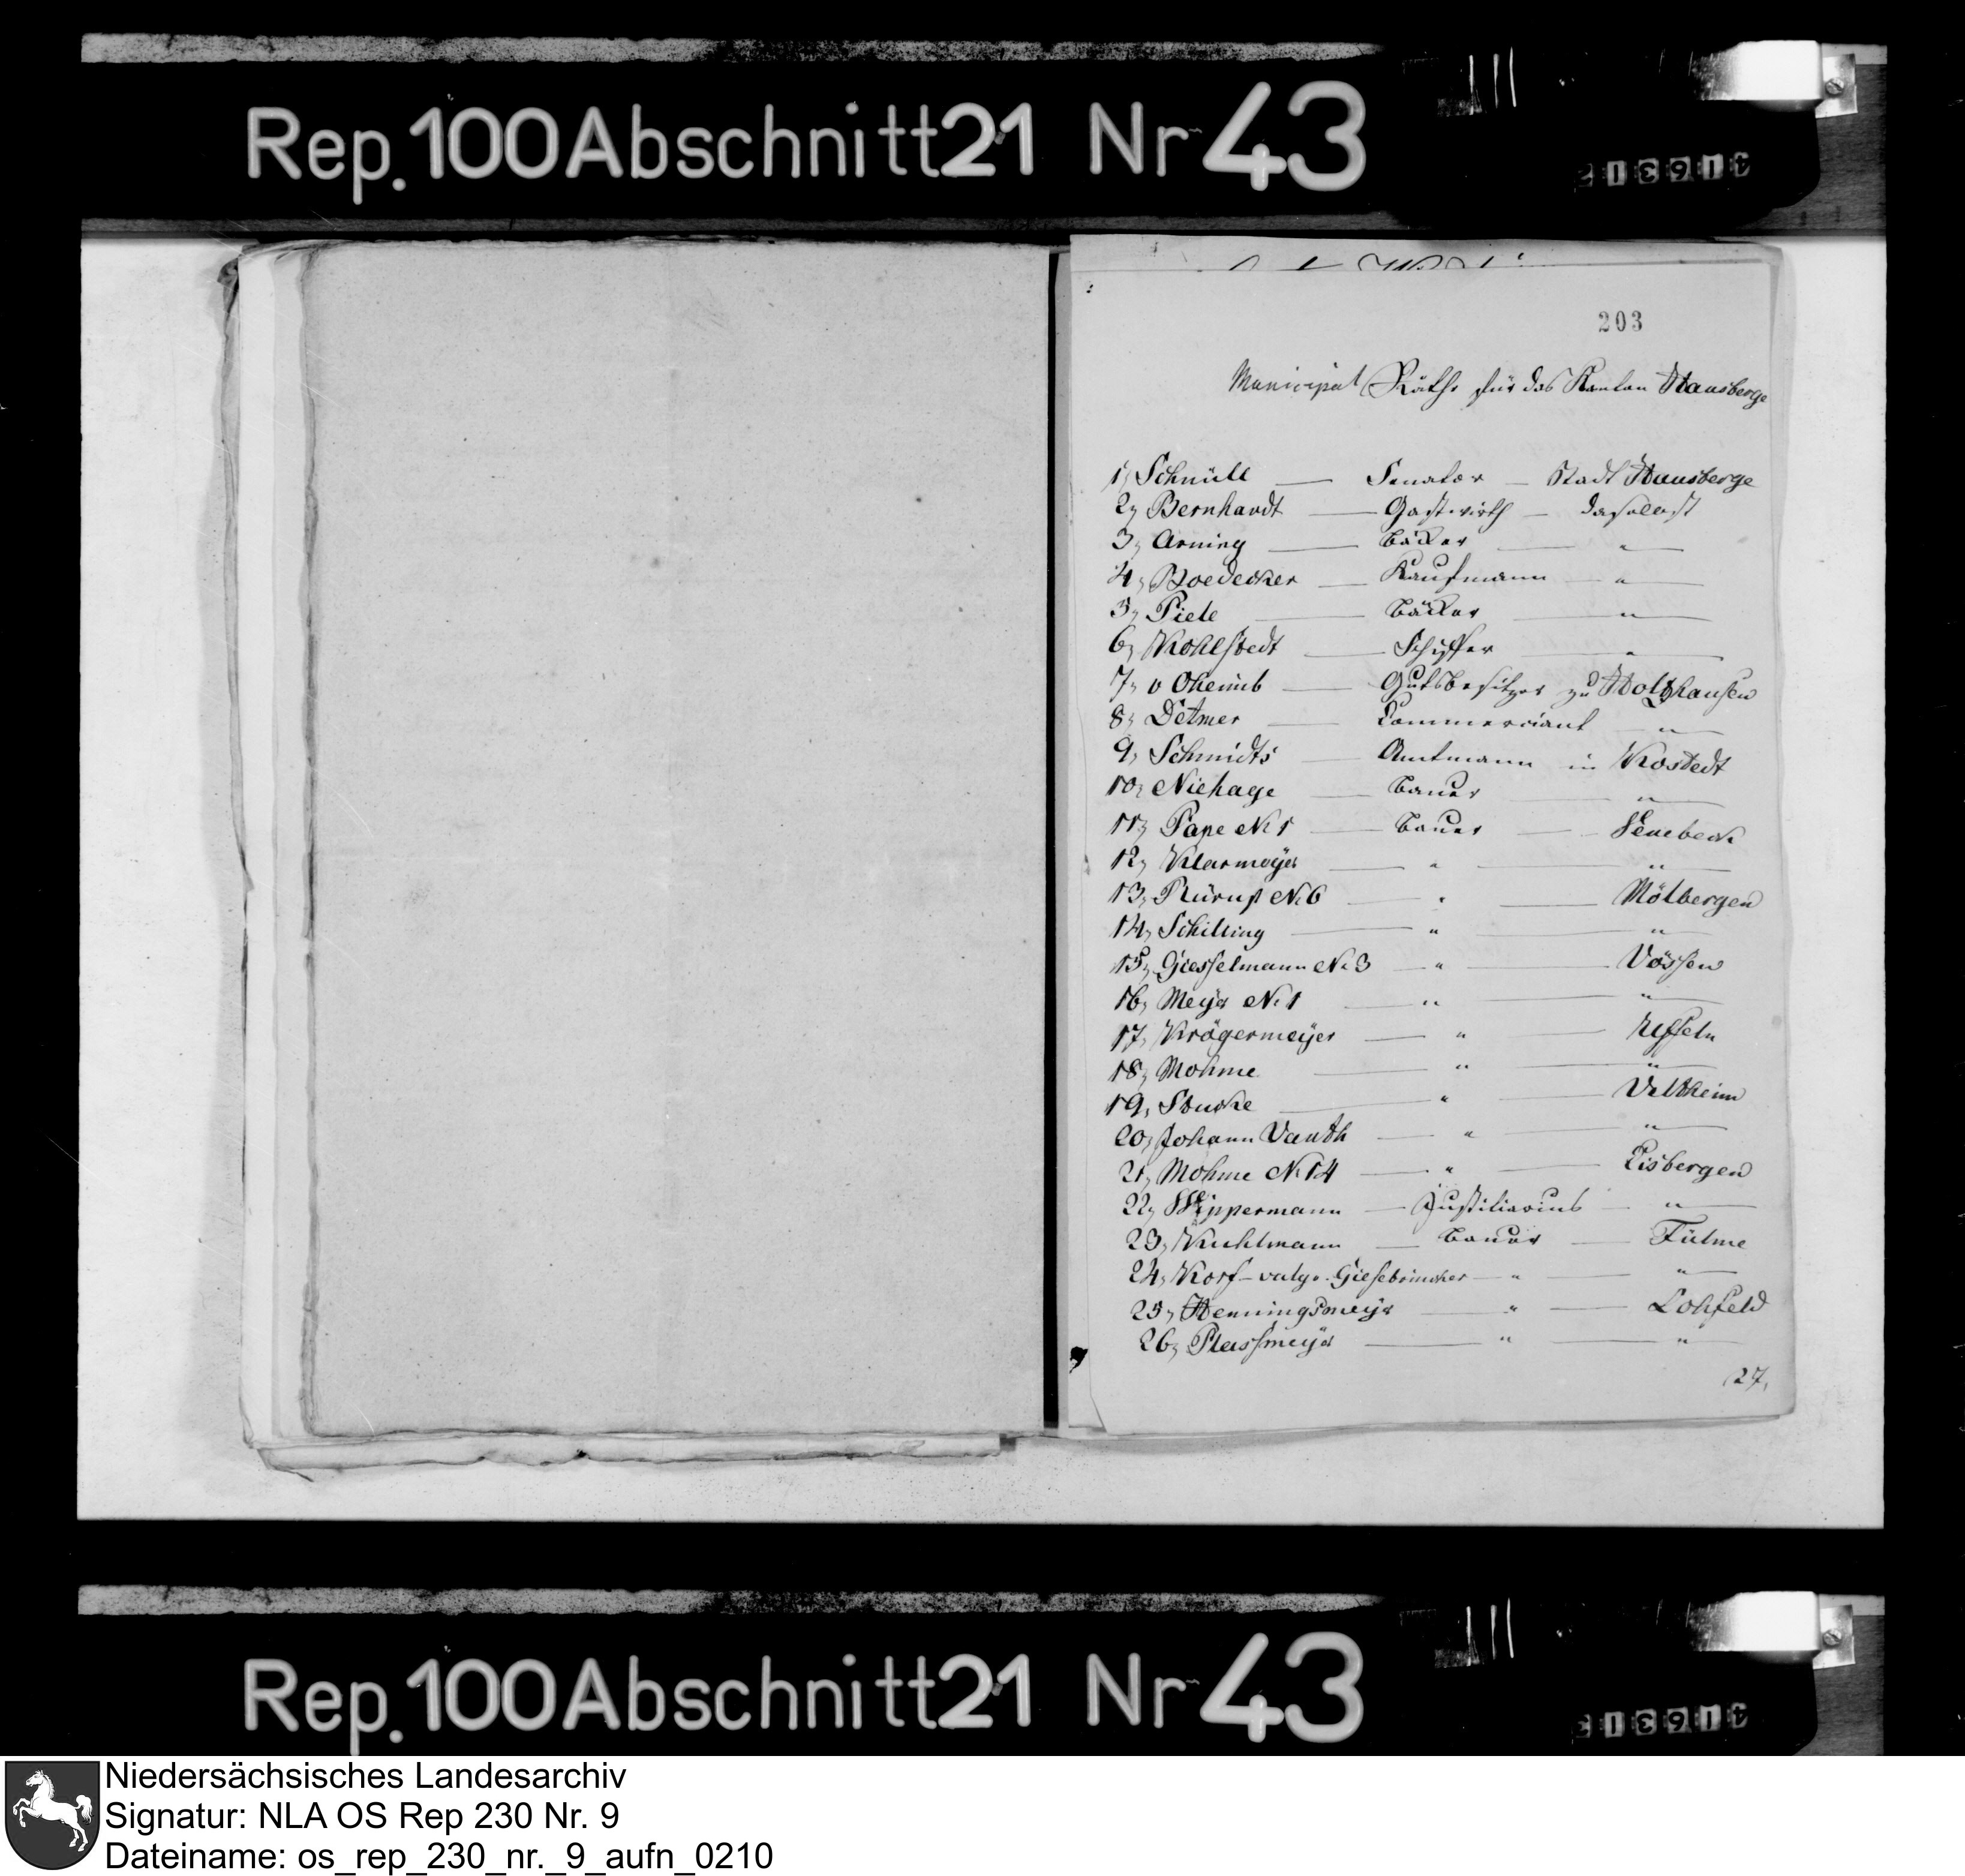 Rep. 100 Abschnitt 21 Nr 43
203
Municipal Räthe für das Kanton Hausberge
1, Schnüll — Senator — Stadt Hausberge
2, Bernhardt — Gastwirth — daselbst
3, Arning — Bäcker — "
4, Boedecker — Kaufmann — "
5, Piele — Bäcker — "
6, Kohlstedt — Schiffer — "
7, v Oheimb — Gutsbesitzer zu Holtzhausen
8, Detmer — Commerciant — "
9, Schmidts — Amtmann in Kostedt
10, Niehage — Bauer — "
11, Pape No 1 — Bauer — Venebeck
12, Klarmeyer — " — "
13, Rürup No 6 — " — Mölbergen
14, Schilling — " — "
15, Giesselmann No 3 — " — Vössen
16, Meyer No 1 — " — "
17, Krögermeijer — " — Uffeln
18, Mohme — " — "
19, Stucke — " — Veltheim
20, Johann Vauth — " — "
21, Mohme No 14 — " — Eisbergen
22, Wippermann — Justitiarius — "
23, Kuhlmann — Bauer — Fülme
24, Korf — vulgo Giesebrincker — " — "
25, Henningsmeyer — " — Lohfeld
26, Plassmeyer — " — "
27,
Rep. 100 Abschnitt 21 Nr 43
Niedersächsisches Landesarchiv
Signatur: NLA OS Rep 230 Nr. 9
Dateiname: os_rep_230_nr._9_aufn_0210